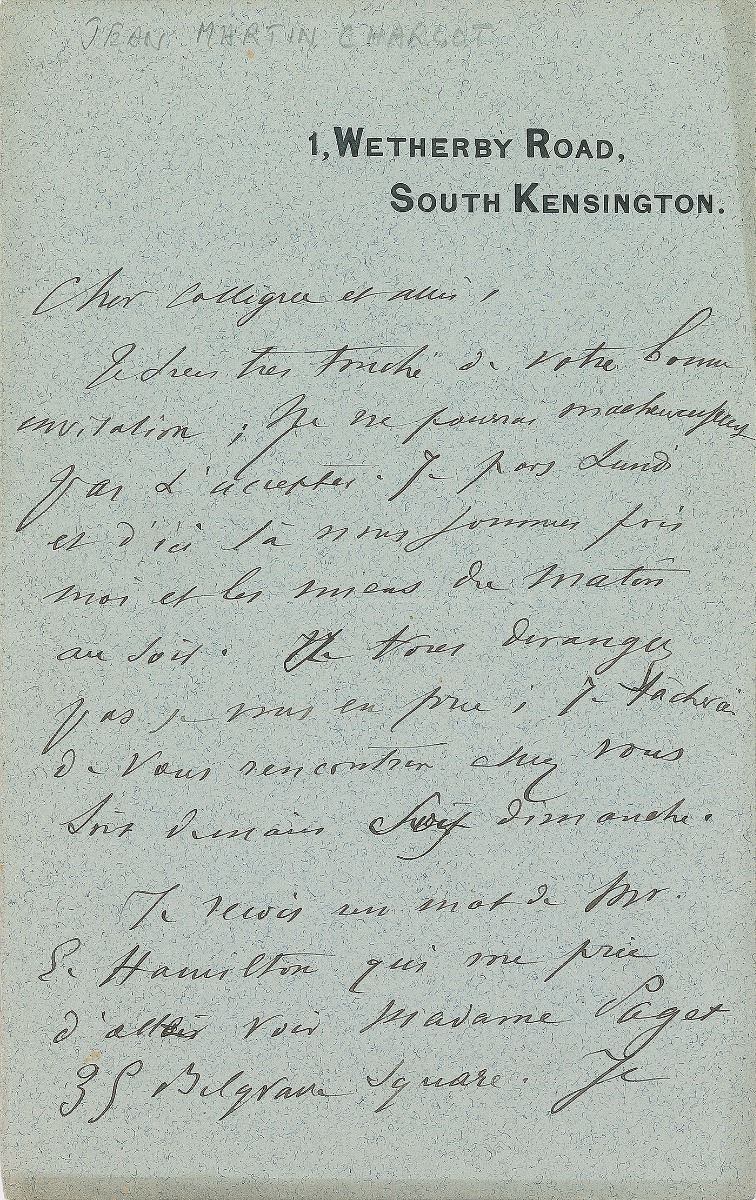 JEAN MARTIN CHARCOT
1, WETHERBY ROAD,
SOUTH KENSINGTON.
Cher collègue et ami,
Je suis très touché de votre bonne
invitation ; Je ne pourrai malheureusement
pas l'accepter. Je pars Lundi
et d'ici là nous sommes pris
moi et les miens du matin
au soir. Ne vous derangez
pas je vous en prie ; Je tâcherai
de vous rencontrer chez vous
soit demain soit dimanche.
Je reçois un mot de Mr.
E. Hamilton qui me prie
d'aller voir Madame Paget
35 Belgrave Square. Je